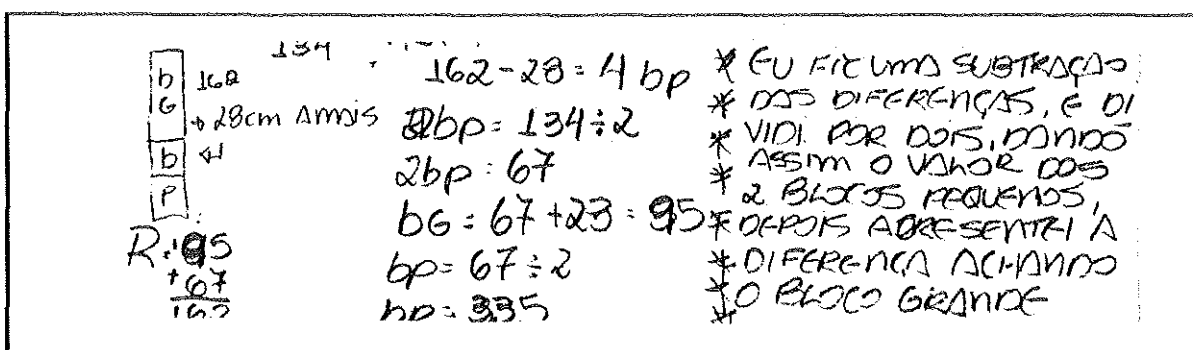 134
b 162
G
→ 28cm Amais
b
P
R: 95
+67
162
162-28=4bp
2bp=134÷2
2bp=67
bG=67+23=95
bp=67÷2
bp=335
* EU FIZ UMA SUBTRAÇÃO
* DAS DIFERENÇAS, E DI
* VIDI POR DOIS, DANDO
* ASSIM O VALOR DOS
2 BLOCOS PEQUENOS,
* DEPOIS APRESENTEI A
* DIFERENÇA ACHANDO
* O BLOCO GRANDE
*